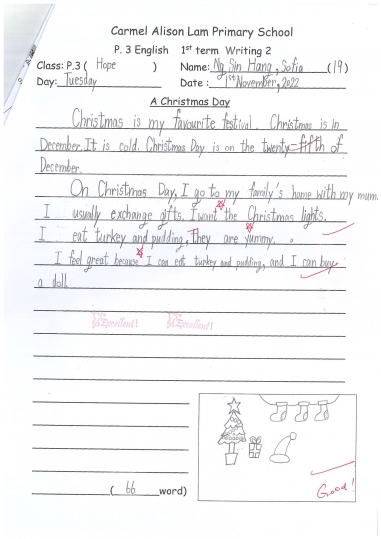 Carmel Alison Lam Primary School
P. 3 English 1st term Writing 2
Class: P.3 ( Hope ) Name: Ng Sin Hang, Sofia (19)
Day: Tuesday Date : 1st November, 2022
A Christmas Day
Christmas is my favourite festival. Christmas is in
December. It is cold. Christmas Day is on the twenty-fifth of
December.
On Christmas Day, I go to my family's home with my mum.
I usually exchange gifts. I want the Christmas lights.
I eat turkey and pudding. They are yummy.
I feel great because I can eat turkey and pudding, and I can buy
a doll.
Excellent! Excellent!
( 66 word)
Good!